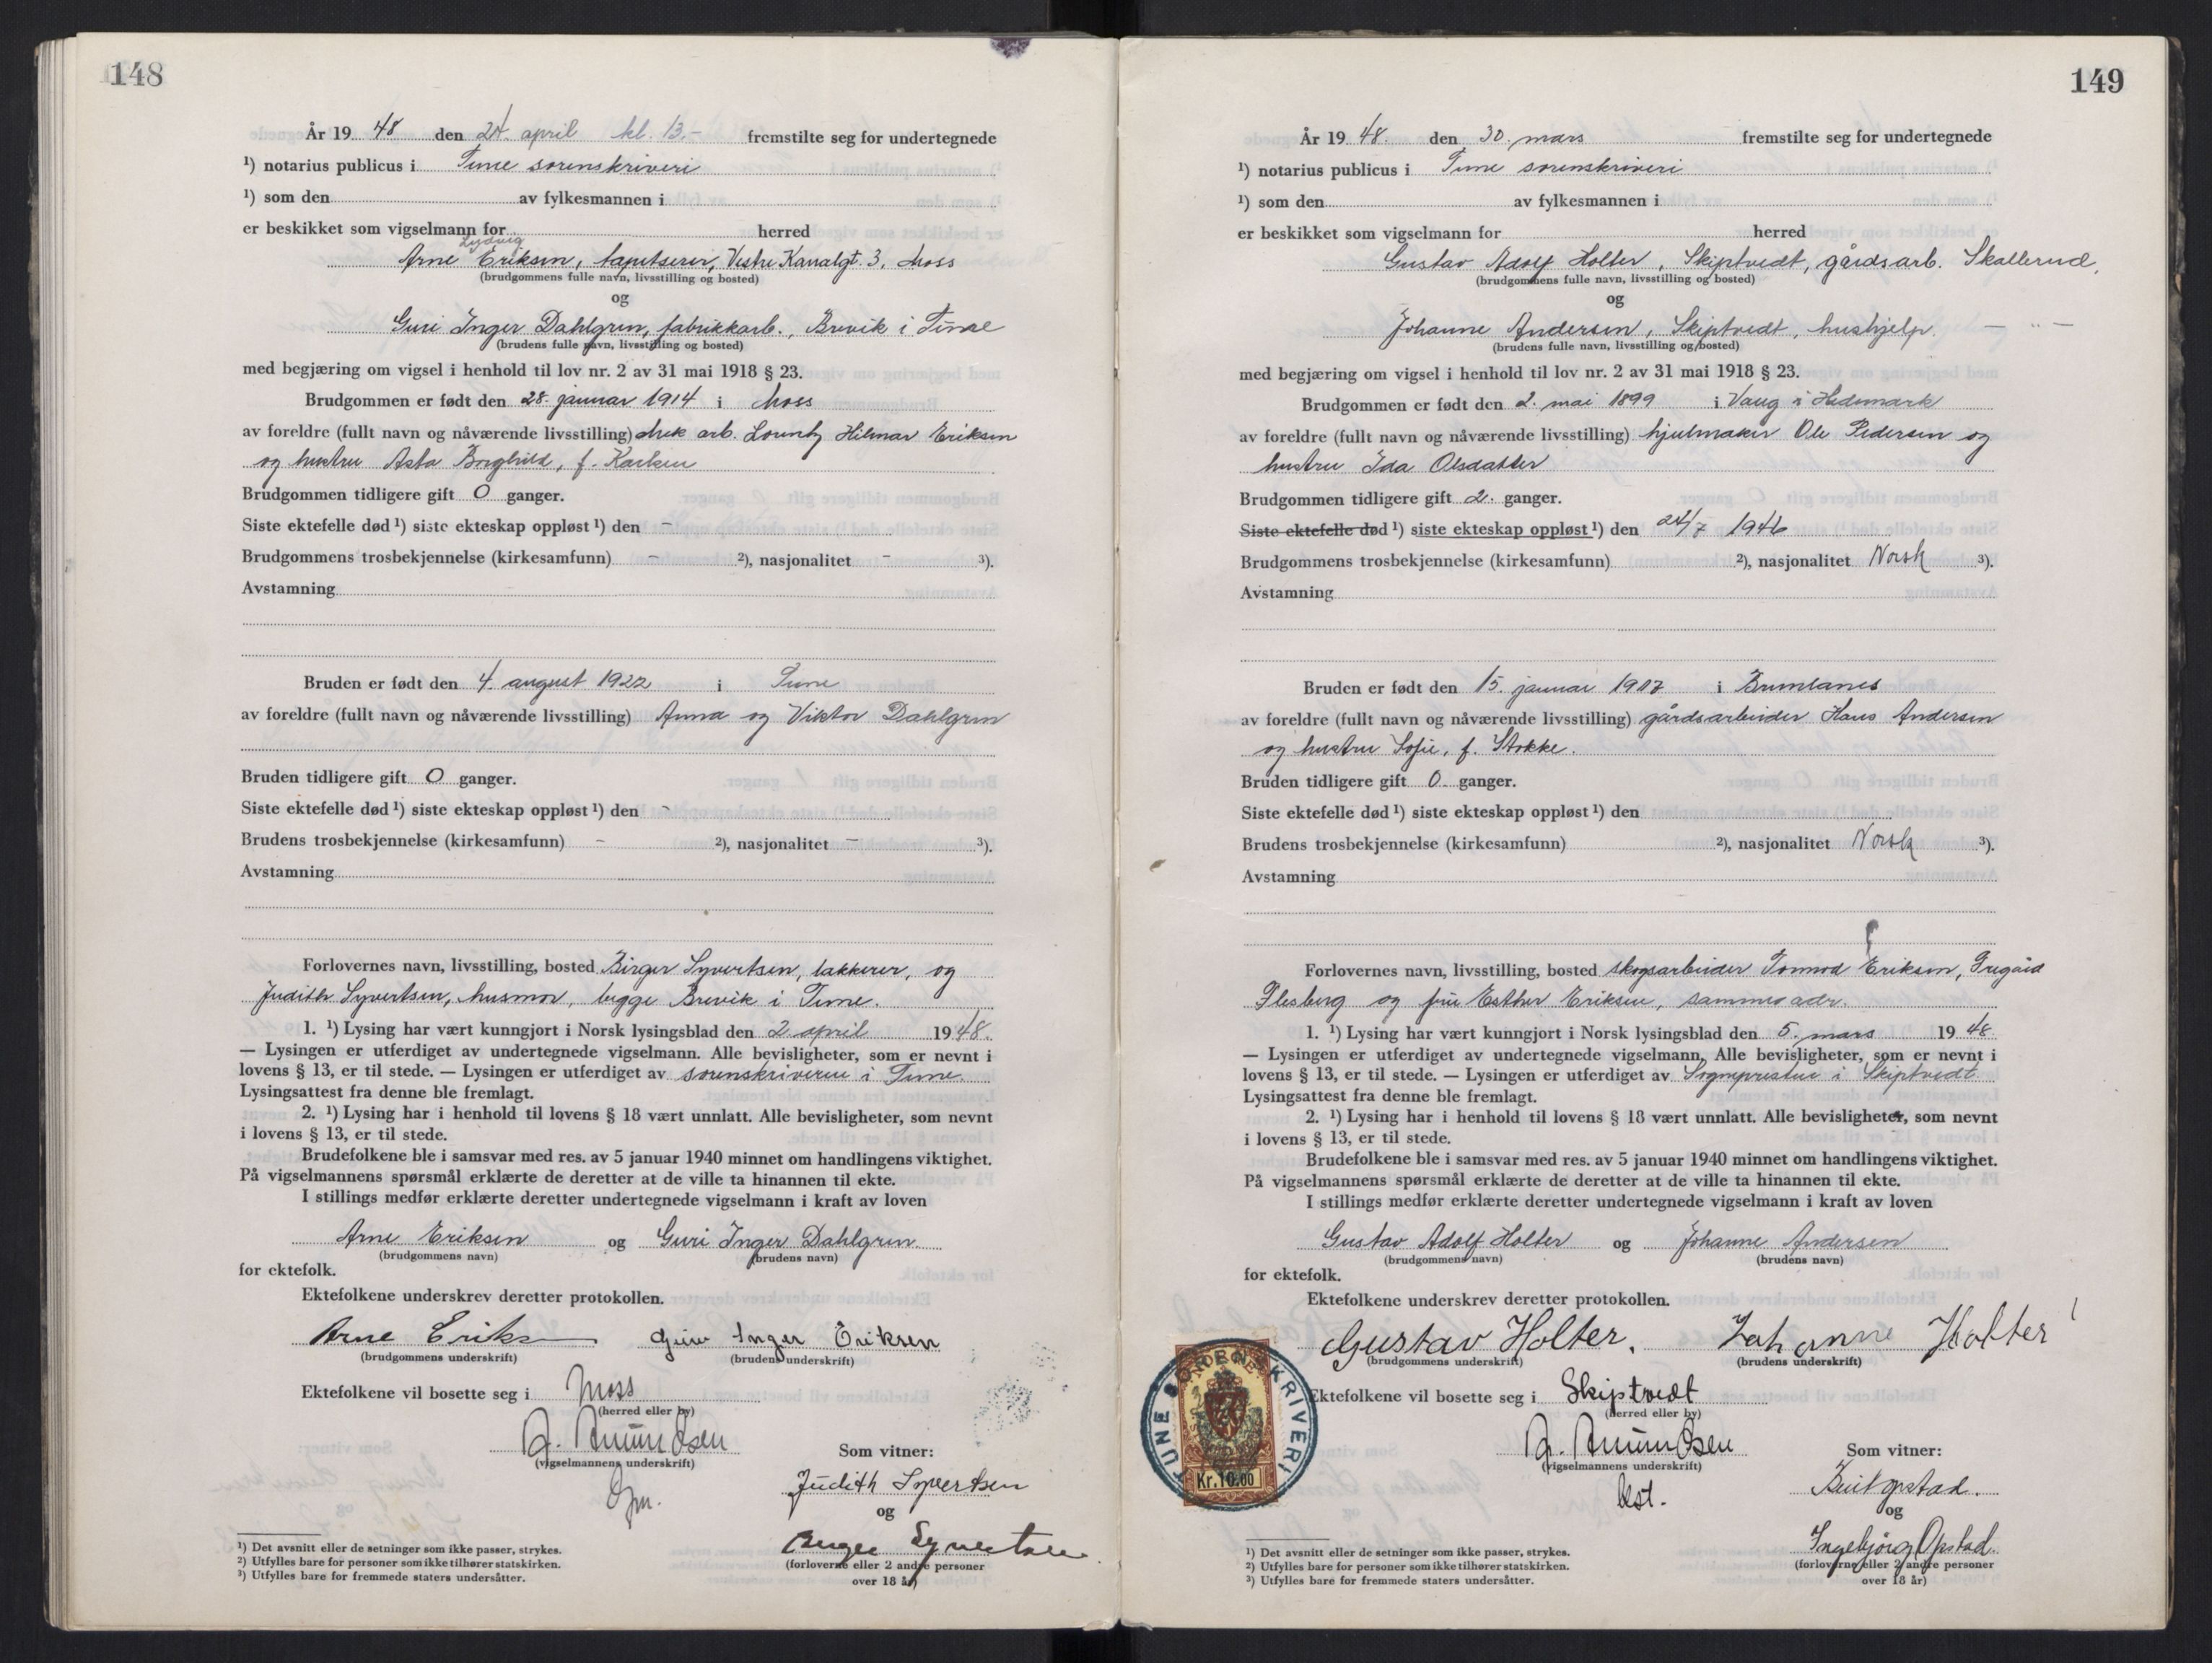 148
År 19 48 den 24. april kl. 13.- fremstilte seg for undertegnede
¹) notarius publicus i Tune sorenskriveri
¹) som den av fylkesmannen i
er beskikket som vigselmann for herred
Ludvig
Arne Eriksen, tapetserer, Vestre Kanalgt. 3, Moss
(brudgommens fulle navn, livsstilling og bosted)
og
Guri Inger Dahlgren, fabrikkarb., Brevik i Tune
(brudens fulle navn, livsstilling og bosted)
med begjæring om vigsel i henhold til lov nr. 2 av 31 mai 1918 § 23.
Brudgommen er født den 28. januar 1914 i Moss
av foreldre (fullt navn og nåværende livsstilling) mek arb. Hilmar Eriksen
og hustru Asta Borghild, f. Karlsen
Brudgommen tidligere gift 0 ganger.
Siste ektefelle død ¹) siste ekteskap oppløst ¹) den -
Brudgommens trosbekjennelse (kirkesamfunn) - ²), nasjonalitet - ³).
Avstamning
Bruden er født den 4. august 1922 i Tune
av foreldre (fullt navn og nåværende livsstilling) Anna og Viktor Dahlgren
Bruden tidligere gift 0 ganger.
Siste ektefelle død ¹) siste ekteskap oppløst ¹) den -
Brudens trosbekjennelse (kirkesamfunn) - ²), nasjonalitet - ³).
Avstamning
Forlovernes navn, livsstilling, bosted Birger Syvertsen, lakkerer, og
Judith Syvertsen, husmor, begge Brevik i Tune.
1. ¹) Lysing har vært kunngjort i Norsk lysingsblad den 2. april 1948.
— Lysingen er utferdiget av undertegnede vigselmann. Alle bevisligheter, som er nevnt i
lovens § 13, er til stede. — Lysingen er utferdiget av sorenskriveren i Tune.
Lysingsattest fra denne ble fremlagt.
2. ¹) Lysing har i henhold til lovens § 18 vært unnlatt. Alle bevisligheter, som nevnt
i lovens § 13, er til stede.
Brudefolkene ble i samsvar med res. av 5 januar 1940 minnet om handlingens viktighet.
På vigselmannens spørsmål erklærte de deretter at de ville ta hinannen til ekte.
I stillings medfør erklærte deretter undertegnede vigselmann i kraft av loven
Arne Eriksen og Guri Inger Dahlgren.
(brudgommens navn) (brudens navn)
for ektefolk.
Ektefolkene underskrev deretter protokollen.
Arne Eriksen Guri Inger Eriksen
(brudgommens underskrift) (brudens underskrift)
Ektefolkene vil bosette seg i Moss
(herred eller by)
A. Amundsen
(vigselmannens underskrift)
Som vitner:
Judith Syvertsen
og
Birger Syvertsen
(forloverne eller 2 andre personer
over 18 år)
¹) Det avsnitt eller de setninger som ikke passer, strykes.
²) Utfylles bare for personer som ikke tilhører statskirken.
³) Utfylles bare for fremmede staters undersåtter.
149
År 19 48. den 30. mars fremstilte seg for undertegnede
¹) notarius publicus i Tune sorenskriveri
¹) som den av fylkesmannen i
er beskikket som vigselmann for herred
Gustav Adolf Holter, Skiptvedt, gårdsarb. Skallerud,
(brudgommens fulle navn, livsstilling og bosted)
og
Johanne Andersen, Skiptvedt, hushjelp. — " —
(brudens fulle navn, livsstilling og bosted)
med begjæring om vigsel i henhold til lov nr. 2 av 31 mai 1918 § 23.
Brudgommen er født den 2. mai 1899 i Vang i Hedemark
av foreldre (fullt navn og nåværende livsstilling) hjulmaker Ole Pedersen og
hustru Ida Olsdatter
Brudgommen tidligere gift 2. ganger.
Siste ektefelle død ¹) siste ekteskap oppløst ¹) den 24/7 1946
Brudgommens trosbekjennelse (kirkesamfunn) ²), nasjonalitet Norsk ³).
Avstamning
Bruden er født den 15. januar 1907 i Brunlanes
av foreldre (fullt navn og nåværende livsstilling) gårdsarbeider Hans Andersen
og hustru Sofie, f. Stokke.
Bruden tidligere gift 0 ganger.
Siste ektefelle død ¹) siste ekteskap oppløst ¹) den
Brudens trosbekjennelse (kirkesamfunn) ²), nasjonalitet Norsk ³).
Avstamning
Forlovernes navn, livsstilling, bosted skogsarbeider Tormod Eriksen,
Flesberg og fru Esther Eriksen, samme adr.
1. ¹) Lysing har vært kunngjort i Norsk lysingsblad den 5. mars 19 48.
— Lysingen er utferdiget av undertegnede vigselmann. Alle bevisligheter, som er nevnt i
lovens § 13, er til stede. — Lysingen er utferdiget av Sognepresten i Skiptvedt
Lysingsattest fra denne ble fremlagt.
2. ¹) Lysing har i henhold til lovens § 18 vært unnlatt. Alle bevisligheter, som nevnt
i lovens § 13, er til stede.
Brudefolkene ble i samsvar med res. av 5 januar 1940 minnet om handlingens viktighet.
På vigselmannens spørsmål erklærte de deretter at de ville ta hinannen til ekte.
I stillings medfør erklærte deretter undertegnede vigselmann i kraft av loven
Gustav Adolf Holter og Johanne Andersen
(brudgommens navn) (brudens navn)
for ektefolk.
Ektefolkene underskrev deretter protokollen.
Gustav Holter. Johanne Holter
(brudgommens underskrift) (brudens underskrift)
TUNE SORENSKRIVERI
Kr. 10.00
Ektefolkene vil bosette seg i Skiptvedt
(herred eller by)
A. Amundsen
(vigselmannens underskrift)
Som vitner:
Opstad.
og
Ingebjørg Opstad.
(forloverne eller 2 andre personer
over 18 år)
¹) Det avsnitt eller de setninger som ikke passer, strykes.
²) Utfylles bare for personer som ikke tilhører statskirken.
³) Utfylles bare for fremmede staters undersåtter.